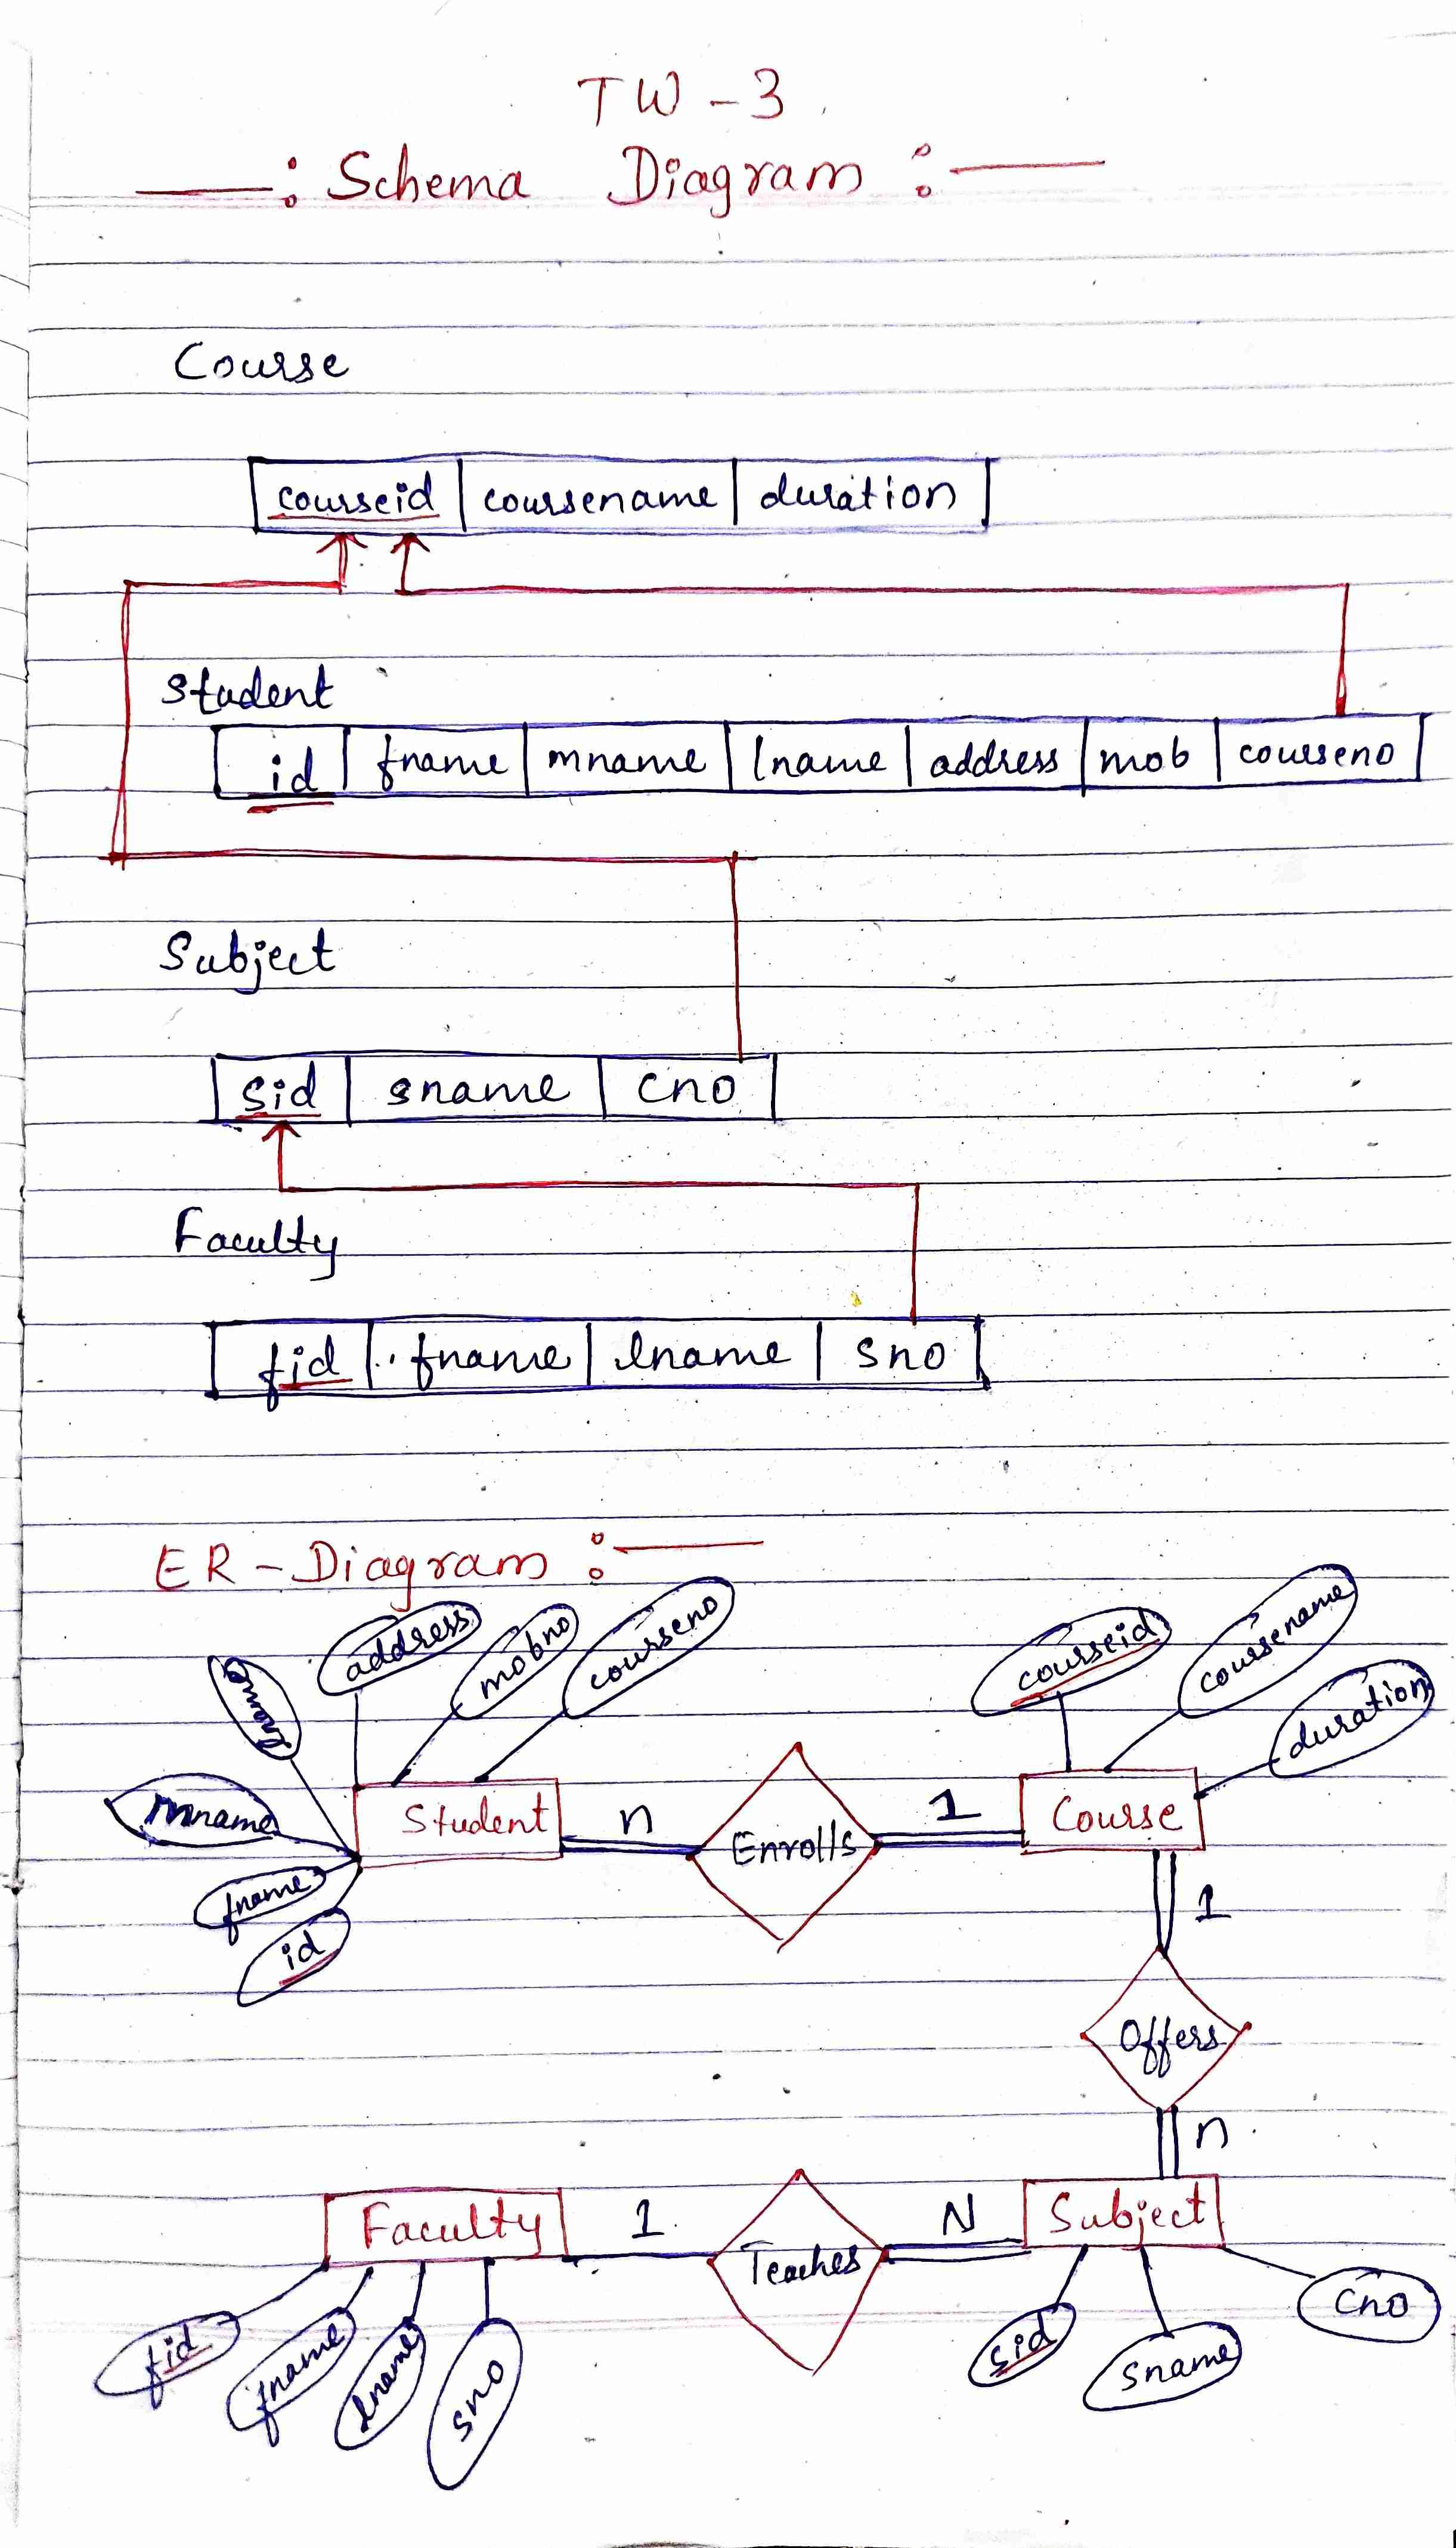 TW - 3
—: Schema Diagram :—
Course
courseid coursename duration
Student
id fname mname lname address mob courseno
Subject
sid sname cno
Faculty
fid fname lname sno
ER-Diagram :—
address mobno courseno courseid coursename
lname duration
mname Student n Enrolls 1 Course
fname
id 1
Offers
n
Faculty 1 Teaches N Subject
fid fname lname sno sid sname cno